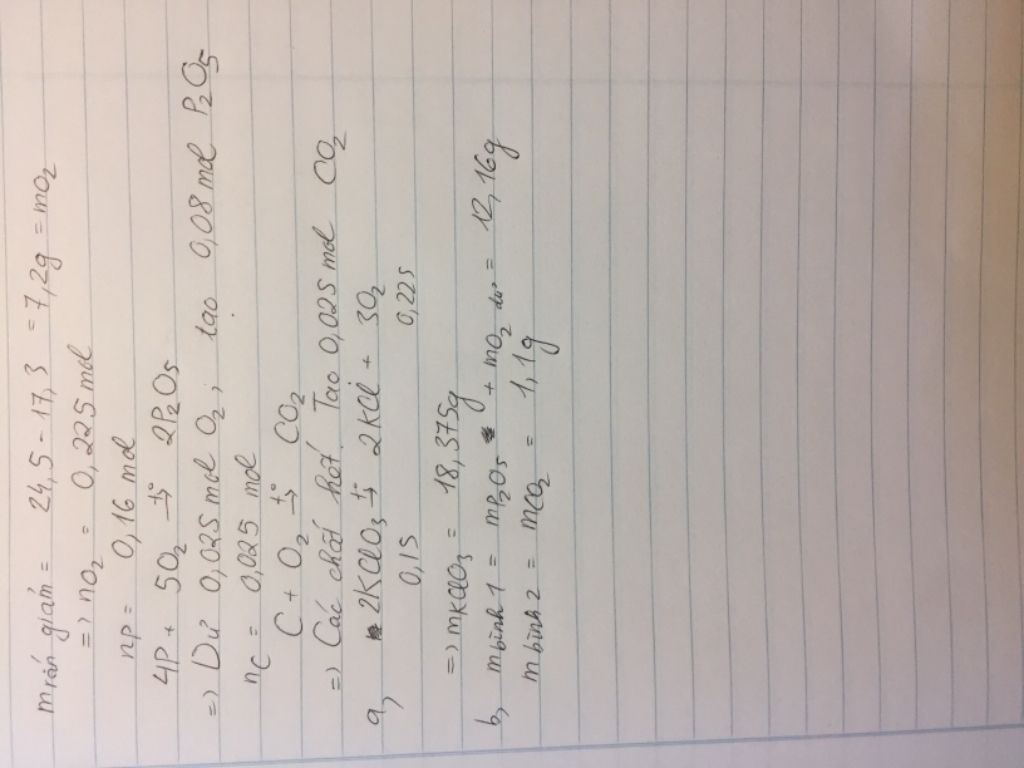 m rắn giảm = 24,5 - 17,3 = 7,2g = mO2
=> nO2 = 0,225 mol
nP = 0,16 mol
4P + 5O2 t°→ 2P2O5
=> Dư 0,025 mol O2; tạo 0,08 mol P2O5
nC = 0,025 mol
C + O2 t°→ CO2
=> Các chất hết. Tạo 0,025 mol CO2
a, 2KClO3 t°→ 2KCl + 3O2
0,15 0,225
=> mKClO3 = 18,375g
b, m bình 1 = mP2O5 + mO2 dư = 12,16g
m bình 2 = mCO2 = 1,1g